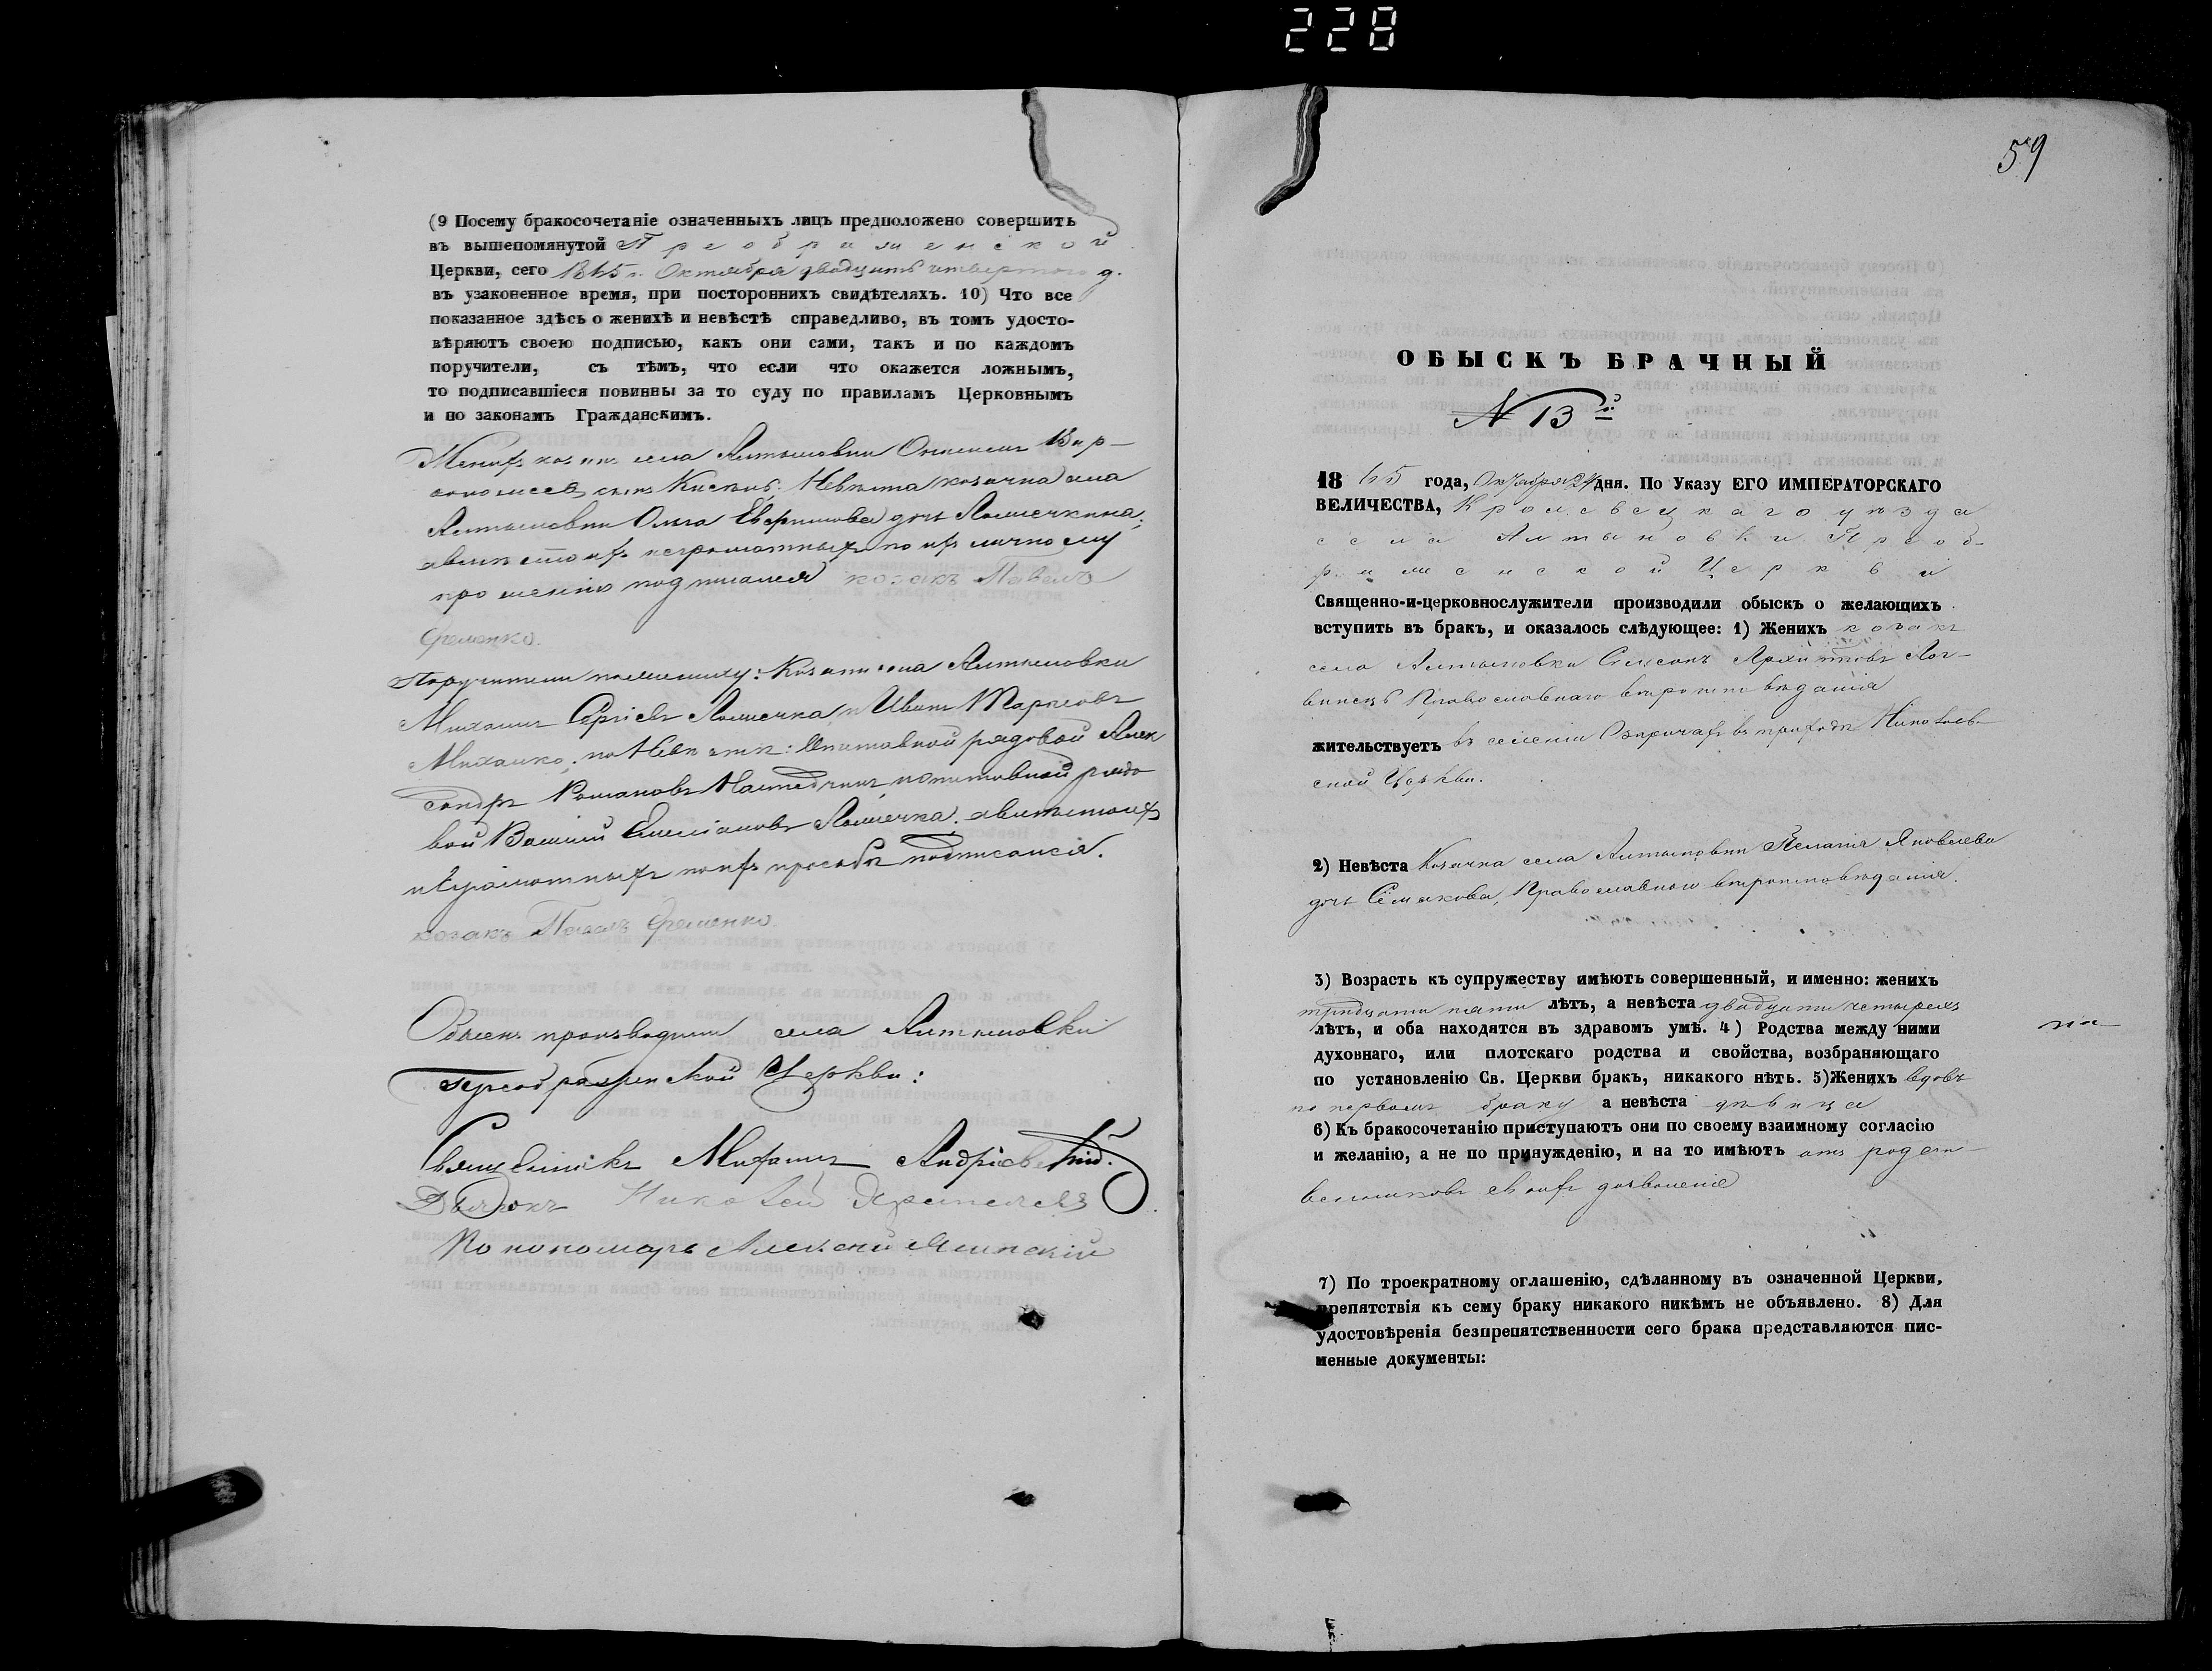 228
(9 Посему бракосочетаніе означенныхъ лицъ предположено совершить
въ вышепомянутой Преображенской
Церкви, сего 1865 г. Октября двадцать четвертого д.
въ узаконенное время, при постороннихъ свидѣтеляхъ. 10) Что все
показанное здѣсь о женихѣ и невѣстѣ справедливо, въ томъ удосто-
вѣряютъ своею подписью, какъ они сами, такъ и по каждомъ
поручители, съ тѣмъ, что если что окажется ложнымъ,
то подписавшіеся повинны за то суду по правиламъ Церковнымъ
и по законамъ Гражданскимъ.
Женихъ козакъ села Алтыновки
сынъ Невѣста козачка села
Алтыновки Ольга дочь Ломечкина,
а вмѣсто ихъ неграмотныхъ по ихъ личному
прошенію подписался козакъ Павелъ
Еременко.
Поручители по жениху: Козаки села Алтыновки
Михаилъ Сергіевъ Ломечка и Иванъ
Михалко; по Невѣстѣ: рядовой Алек
сандръ Романовъ рядо
вой Василій Емеліановъ Ломечка. а вмѣсто ихъ
неграмотныхъ по ихъ просьбѣ подписался.
козакъ Павелъ Еременко.
Обыскъ производили села Алтыновки
Преображенской Церкви:
Священникъ Михаилъ
Дьячокъ Николай
Пономарь Алексѣй
59
ОБЫСКЪ БРАЧНЫЙ
N 13й
1865 года, Октября 24 дня. По Указу ЕГО ИМПЕРАТОРСКАГО
ВЕЛИЧЕСТВА, Кролевецкаго уѣзда
села Алтыновки Преоб-
раженской Церкви
Священно-и-церковнослужители производили обыскъ о желающихъ
вступить въ бракъ, и оказалось слѣдующее: 1) Женихъ козакъ
села Алтыновки Симеонъ Архиповъ Лог-
винецъ Православнаго вѣроисповѣданія
жительствуетъ въ селеніи въ приходѣ Николаев-
ской Церкви.
2) Невѣста Козачка села Алтыновки Пелагія Яковлева
дочь Семакова, Православнаго вѣроисповѣданія.
3) Возрастъ къ супружеству имѣютъ совершенный, и именно: женихъ
тридцати пяти лѣтъ, а невѣста двадцати четырехъ
лѣтъ, и оба находятся въ здравомъ умѣ. 4) Родства между ними
духовнаго, или плотскаго родства и свойства, возбраняющаго
по установленію Св. Церкви бракъ, никакого нѣтъ. 5) Женихъ вдовъ
по первомъ браку а невѣста дѣвица
6) Къ бракосочетанію приступаютъ они по своему взаимному согласію
и желанію, а не по принужденію, и на то имѣютъ отъ родст-
венниковъ своихъ дозволеніе
7) По троекратному оглашенію, сдѣланному въ означенной Церкви,
препятствія къ сему браку никакого никѣмъ не объявлено. 8) Для
удостовѣренія безпрепятственности сего брака представляются пис-
менные документы: